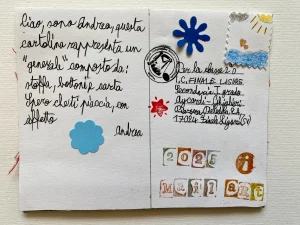 Ciao, sono Andrea, questa
cartolina rappresenta un
"gensele" composto da:
stoffa, bottoni e carta
Spero che ti piaccia, con
affetto
Andrea
Per la classe 2D
I.C. FINALE LIGURE
Secondaria I grado
17024 Finale Ligure (SV)
2025
MAIL ART